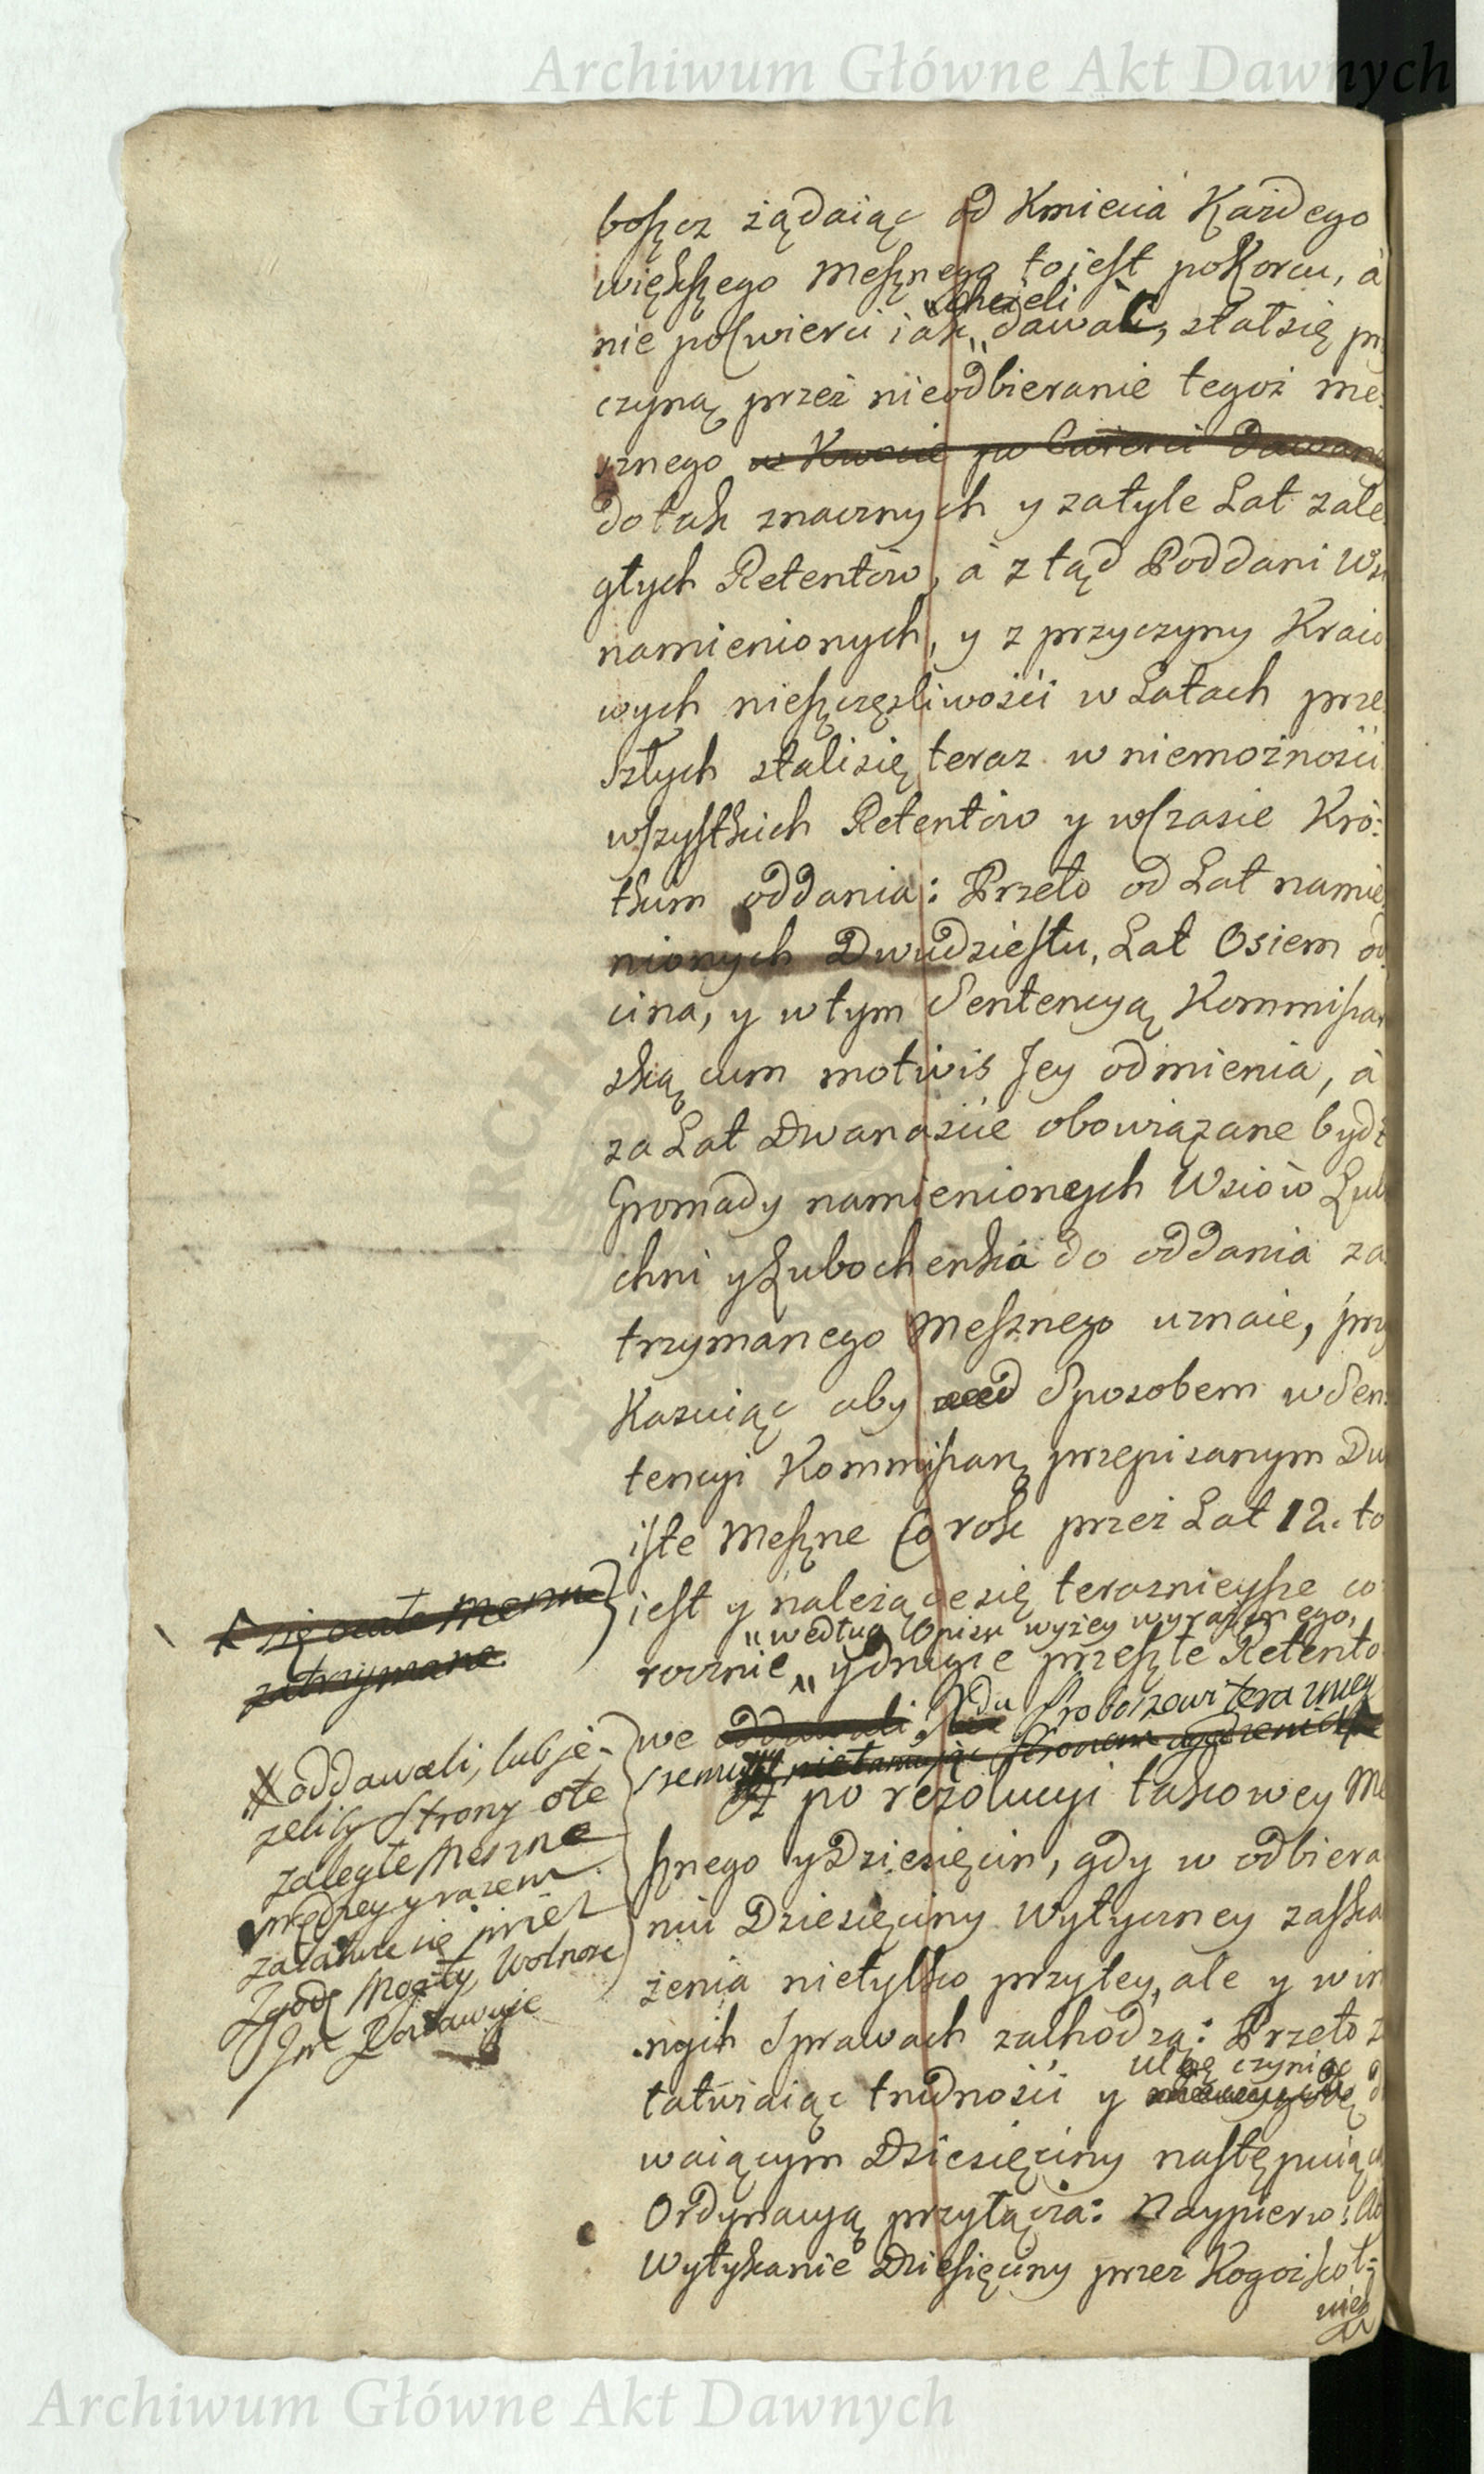 Archiwum Główne Akt Dawnych
boszcz żądaiąc od Kmiecia Każdego
większego Mesznego to iest po Korcu, á
nie poćwierci iak „chcieli dawać, stał się pr
czyną przez nieodbieranie tegoż me:
sznego w Kwocie po Cwierci Dawan
do tak znacznych y za tyle Lat zale
głych Retentów, á ztąd Poddani Wsi
namienionych, y z przyczyny Kraio
wych nieszczęsliwości w Latach prze
szłych stali się teraz w niemożności
wszystkich Retentów y wczasie Kró:
tkim oddania: Przeto od Lat namie
nionych Dwudziestu, Lat Osiem od
cina, y w tym Sentencyą Kommissar
ską cum motivis Jey odmienia, á
za Lat Dwanaście obowiązane bydź
Gromady namienionych Wsiów Lub
chni y Lubochenka do oddania za
trzymanego Mesznego uznaie, przy
Kazuiąc aby Sposobem w Sen:
tencyi Kommissarz przepisanym Dw
iste Meszne Co rok przez Lat 12. to
iest y należące się teraznieysze co
rocznie „według Opisu wyżey wyrażonego, y drugie przeszłe Retento
we oddawali, Xdu Proboszczowi terazniey
szemu
po rezolucyi takowey Me
sznego y Dziesięcin, gdy w odbiera
niu Dziesięciny Wytyczney zaska
żenia nietylko przytey, ale y win
nych Sprawach zachodzą: Przeto z
tatwiaiąc trudności y ulgę czyniąc d
waiącym Dziesięciny następuiąc
Ordynacyą przyłącza: Naypierw:
Wytykanie Dziesięciny przez Kogożkol:
wiek
się całe Meszne
zatrzymane.
oddawali, lub je:
żeliby Strony o te
zaległe Meszne
prędzey y razem
załatwić się przez
Zgodę Mogły, Wolność
Im Zostawuje
Archiwum Główne Akt Dawnych